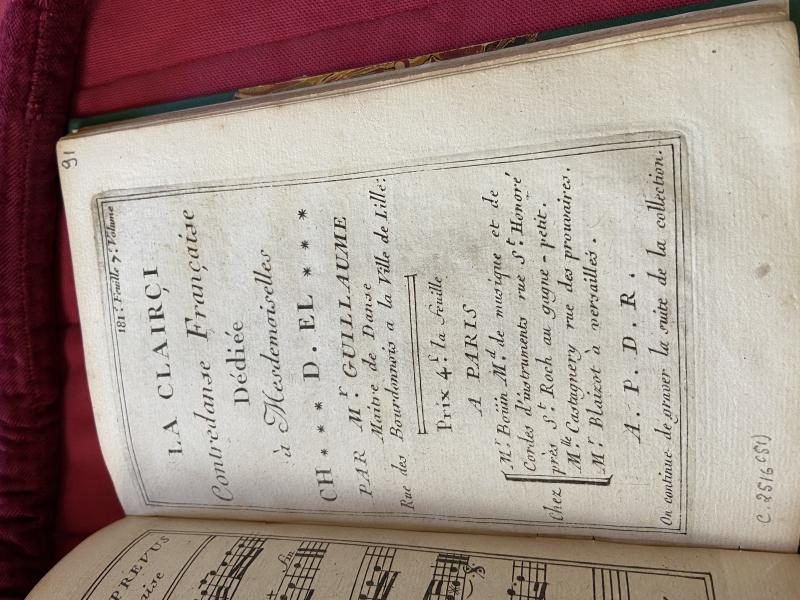 91
181.e Feuille 7.e Volume
LA CLAIRÇI
Contredanse Française
Dédiée
à Mesdemoiselles
CH *** D. EL ***
PAR Mr GUILLAUME
Maitre de Danse
Rue des Bourdonnois a la Ville de Lille:
Prix 4.f la feuille
A PARIS
Mr. Boüin M.d de musique et de
Cordes d'instruments rue St. Honoré
Chez près St. Roch au gagne-petit.
Mlle. Castagnery rue des prouvaires.
Mr. Blaizot à versailles.
A. P. D. R.
On continue de graver la suite de la collection.
C. 2516 (51)
PREVUS
aise
fin